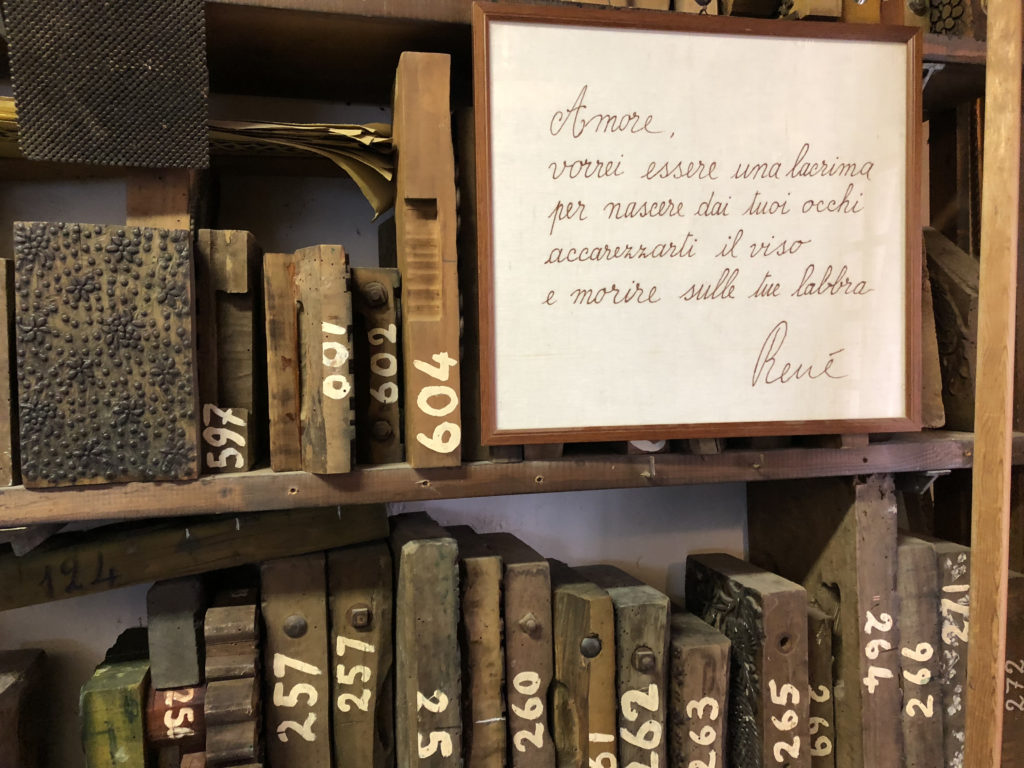 Amore,
vorrei essere una lacrima
per nascere dai tuoi occhi
accarezzarti il viso
e morire sulle tue labbra
René
597
600
602
604
124
257
257
260
262
263
265
264
266
271
272